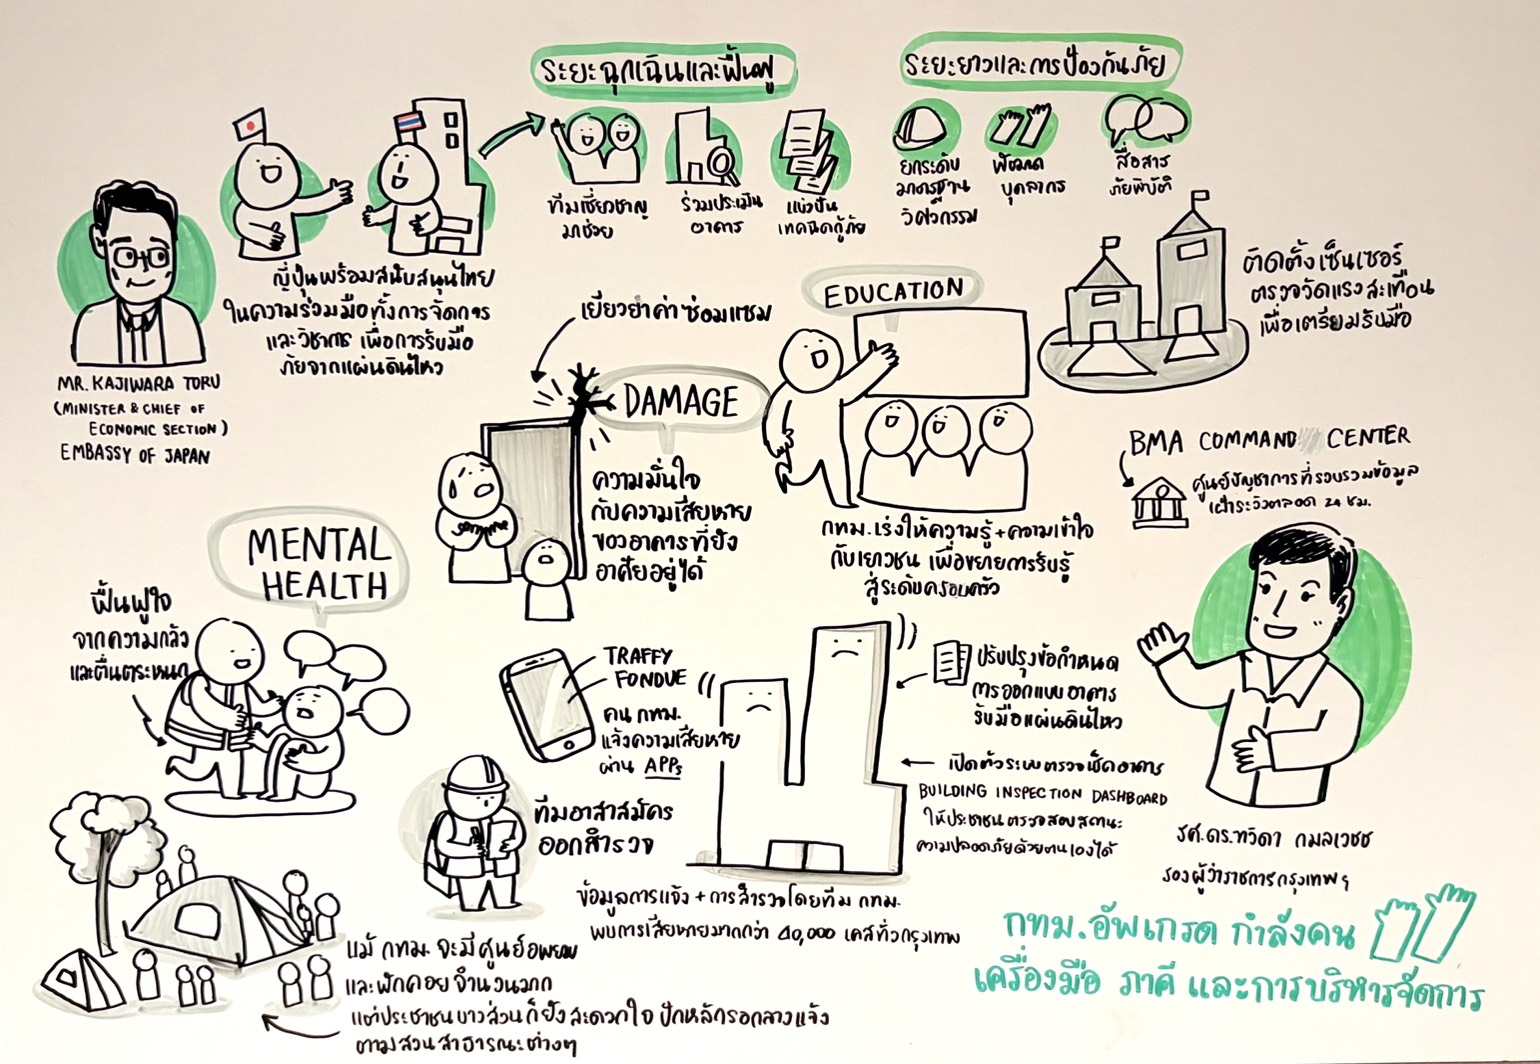 ระยะฉุกเฉินและฟื้นฟู
ทีมเชี่ยวชาญ
มาช่วย
ร่วมประเมิน
อาคาร
แบ่งปัน
เทคนิคกู้ภัย
ระยะยาวและการป้องกันภัย
ยกระดับ
มาตรฐาน
วิศวกรรม
พัฒนา
บุคลากร
สื่อสาร
ภัยพิบัติ
MR. KAJIWARA TORU
(MINISTER & CHIEF OF
ECONOMIC SECTION)
EMBASSY OF JAPAN
ญี่ปุ่นพร้อมสนับสนุนไทย
ในความร่วมมือทั้งการจัดการ
และวิชาการ เพื่อการรับมือ
ภัยจากแผ่นดินไหว
เยียวยาค่าซ่อมแซม
DAMAGE
ความมั่นใจ
กับความเสียหาย
ของอาคารที่ยัง
อาศัยอยู่ได้
EDUCATION
กทม. เร่งให้ความรู้ + ความเข้าใจ
กับเยาวชน เพื่อขยายการรับรู้
สู่ระดับครอบครัว
ติดตั้งเซ็นเซอร์
ตรวจวัดแรงสะเทือน
เพื่อเตรียมรับมือ
BMA COMMAND CENTER
ศูนย์บัญชาการที่รวบรวมข้อมูล
เฝ้าระวังตลอด 24 ชม.
MENTAL
HEALTH
ฟื้นฟูใจ
จากความกลัว
และตื่นตระหนก
TRAFFY
FONDUE
คน กทม.
แจ้งความเสียหาย
ผ่าน APPs
ทีมอาสาสมัคร
ออกสำรวจ
ปรับปรุงข้อกำหนด
การออกแบบอาคาร
รับมือแผ่นดินไหว
เปิดตัวระบบตรวจเช็คอาคาร
BUILDING INSPECTION DASHBOARD
ให้ประชาชนตรวจสอบสถานะ
ความปลอดภัยด้วยตนเองได้
ข้อมูลการแจ้ง + การสำรวจโดยทีม กทม.
พบการเสียหายมากกว่า 40,000 เคสทั่วกรุงเทพ
รศ.ดร.ทวิดา กมลเวชช
รองผู้ว่าราชการกรุงเทพฯ
แม้ กทม. จะมีศูนย์อพยพ
และพักคอยจำนวนมาก
แต่ประชาชนบางส่วนก็ยังสะดวกใจ ปักหลักรอกลางแจ้ง
ตามสวนสาธารณะต่างๆ
กทม. อัพเกรด กำลังคน
เครื่องมือ ภาคี และการบริหารจัดการ